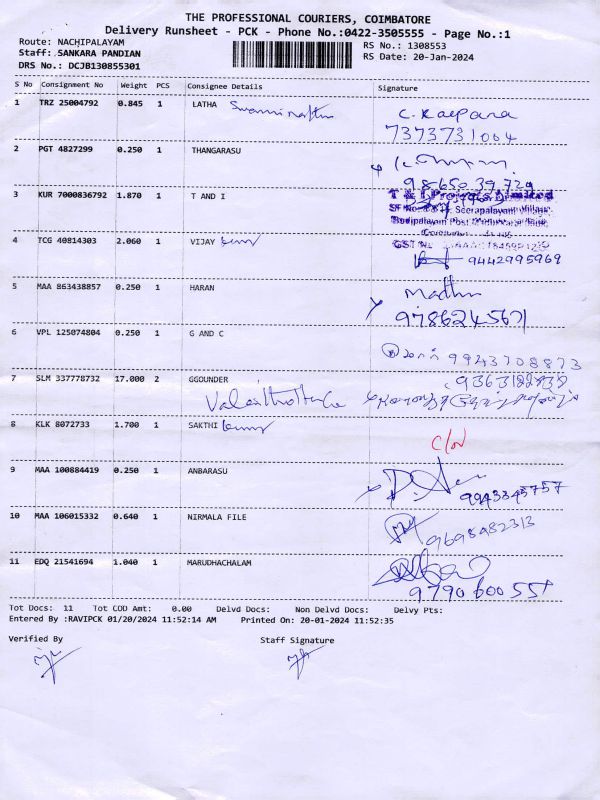 THE PROFESSIONAL COURIERS, COIMBATORE
Delivery Runsheet - PCK - Phone No.:0422-3505555 - Page No.:1
Route: NACHIPALAYAM RS No.: 1308553
Staff: SANKARA PANDIAN RS Date: 20-Jan-2024
DRS No.: DCJB130855301
S No Consignment No Weight PCS Consignee Details Signature
1 TRZ 25004792 0.845 1 LATHA C. Kalpana
7373731004
2 PGT 4827299 0.250 1 THANGARASU
98650 39729
3 KUR 7000836792 1.870 1 T AND I
Seerapalayam Village,
4 TCG 40814303 2.060 1 VIJAY
9442995969
5 MAA 863438857 0.250 1 HARAN Madhu
9786245671
6 VPL 125074804 0.250 1 G AND C
9943708873
7 SLM 337778732 17.000 2 GGOUNDER
8 KLK 8072733 1.700 1 SAKTHI
9 MAA 100884419 0.250 1 ANBARASU
9943345757
10 MAA 106015332 0.640 1 NIRMALA FILE
9698982313
11 EDQ 21541694 1.040 1 MARUDHACHALAM
9790600551
Tot Docs: 11 Tot COD Amt: 0.00 Delvd Docs: Non Delvd Docs: Delvy Pts:
Entered By :RAVIPCK 01/20/2024 11:52:14 AM Printed On: 20-01-2024 11:52:35
Verified By Staff Signature